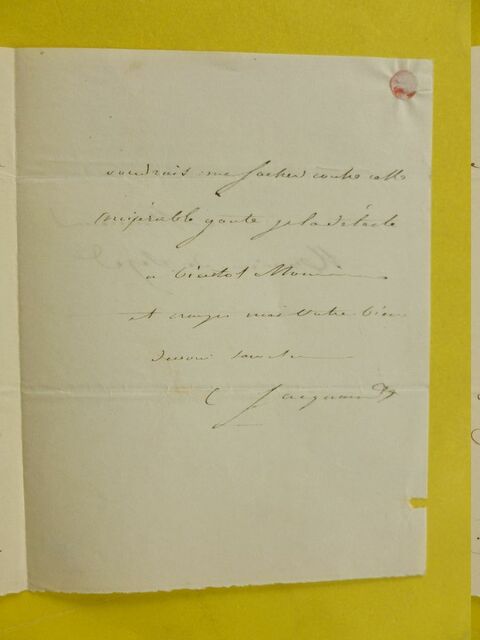 voudrais me facher contre cette
misérable goute je la déteste
a bientot Monsieur
et croyez moi votre bien
devoué
C Jacquand